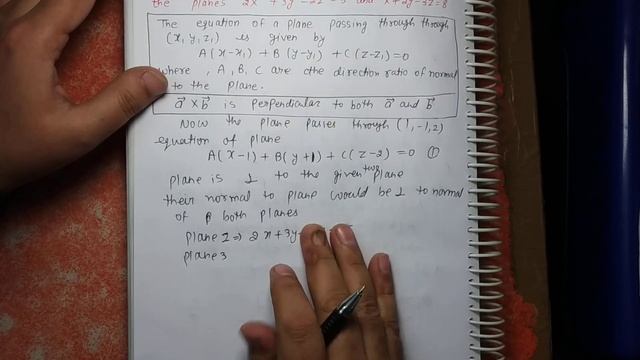 the planes 2x + 3y - 2z = 5 and x + 2y - 3z = 8
The equation of a plane passing through through
(x₁, y₁, z₁) is given by
A(x-x₁) + B(y-y₁) + C(z-z₁) = 0
where, A, B, C are the direction ratio of normal
to the plane.
a⃗ × b⃗ is perpendicular to both a⃗ and b⃗
Now the plane passes through (1, -1, 2)
equation of plane
A(x-1) + B(y+1) + C(z-2) = 0 ①
plane is ⊥ to the given two plane
their normal to plane would be ⊥ to normal
of both planes
plane 2 ⇒ 2x + 3y -
plane 3